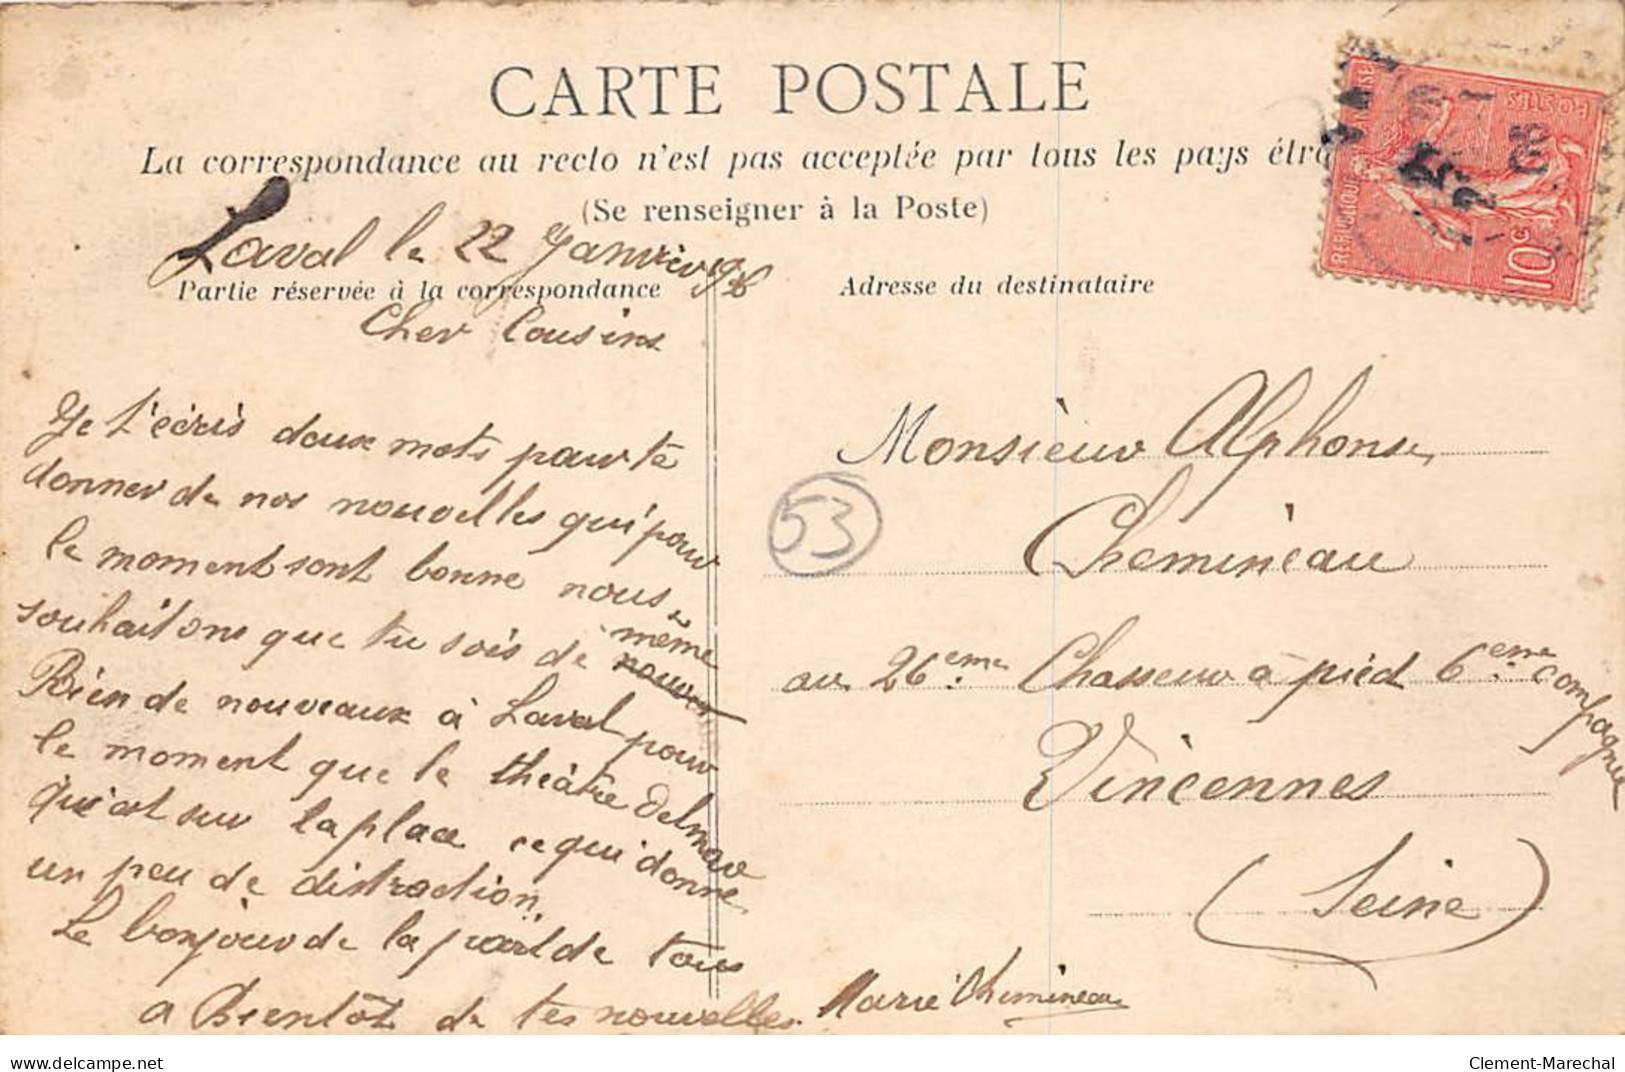 CARTE POSTALE
La correspondance au recto n'est pas acceptée par tous les pays étra
(Se renseigner à la Poste)
Laval le 22 Janvier
Partie réservée à la correspondance
Adresse du destinataire
Cher Cousins
Je t'écris deux mots pour te
donner de nos nouvelles qui pour
le moment sont bonne nous
souhaitons que tu sois de même
Rien de nouveaux à Laval pour
le moment que le théâtre Delmare
qui est sur la place ce qui donne
un peu de distraction.
Le bonjour de la part de tous
a Bientôt de tes nouvelles. Marie Chemineau
Monsieur Alphonse
Chemineau
au 26eme Chasseur à pied 6eme compagnie
Vincennes
(Seine)
53
REPUBLIQUE FRANÇAISE
POSTES
10c
delcampe.net
Clement-Marechal